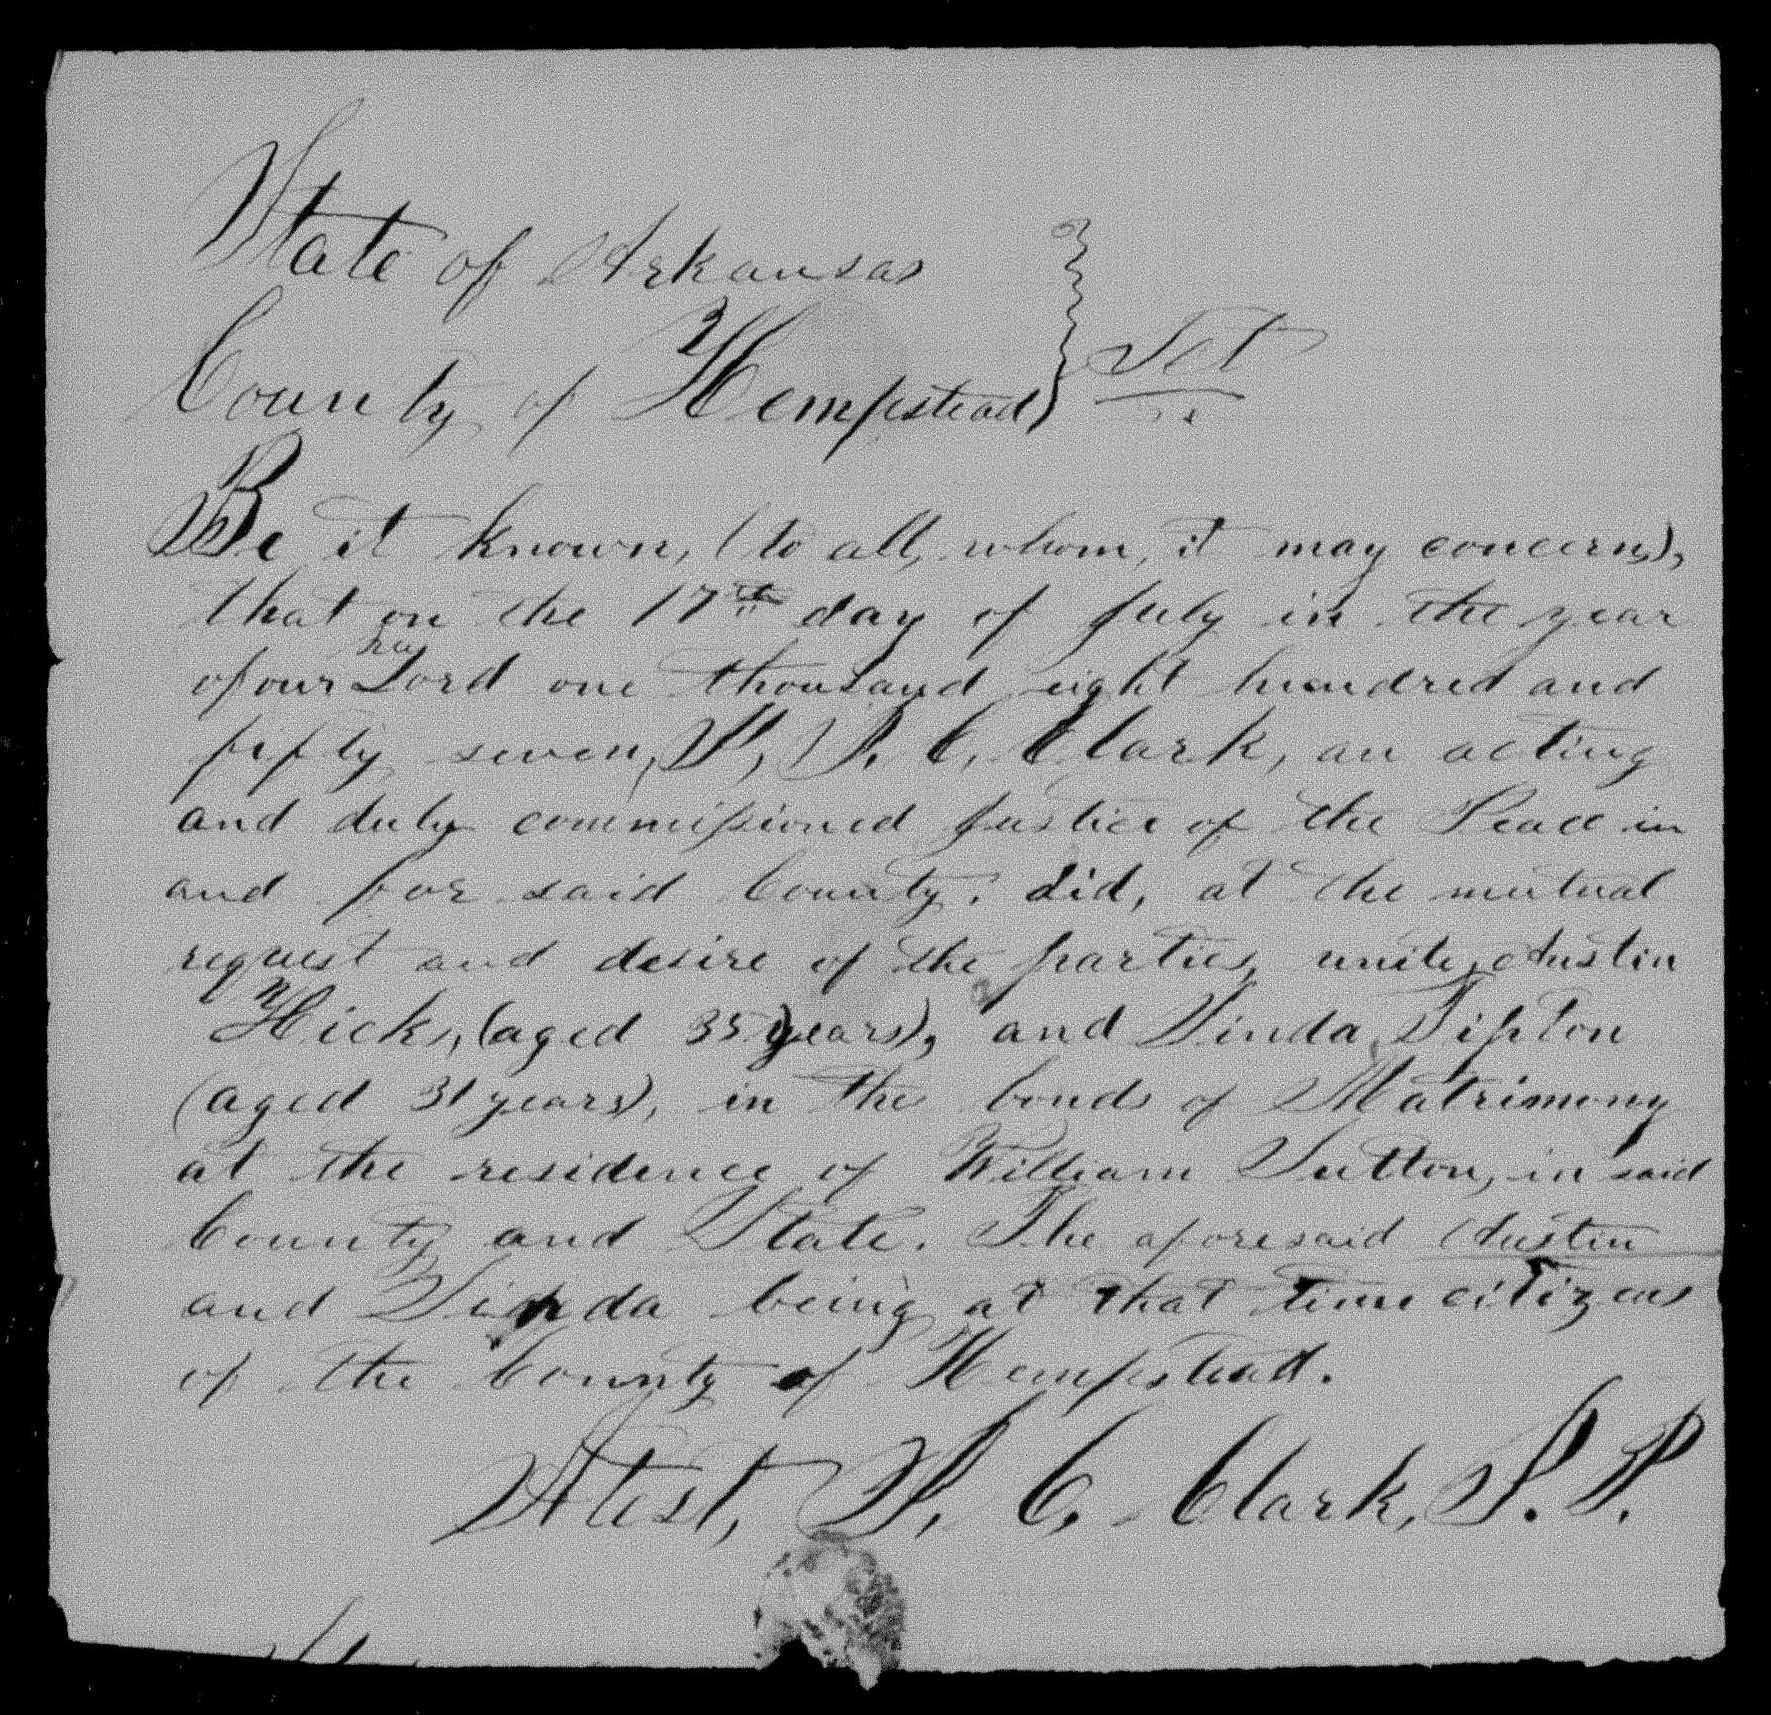 State of Arkansas
County of Hempstead } Sct
Be it known, (to all, whom, it may concern),
that on the 17th day of July in the year
of our Lord one thousand eight hundred and
fifty seven, I, J. C. Clark, an acting
and duly commissioned Justice of the Peace in
and for said County. did, at the mutual
request and desire of the parties, unite, Austin
Hicks, (aged 35 years), and Sinda Tipton
(aged 31 years), in the bonds of Matrimony
at the residence of William Sutton, in said
County and State. The aforesaid Austin
and Sinda being at that time citizens
of the County of Hempstead.
Attest, J. C. Clark, J. P.